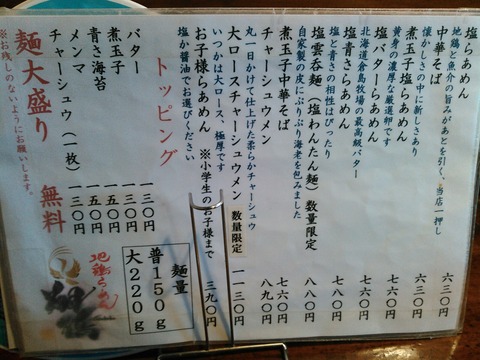 塩らぁめん 六三〇円
地鶏と魚介の旨みがあとを引く、当店一押し
中華そば 六三〇円
懐かしさの中に新しさあり
煮玉子塩らぁめん 七六〇円
黄身の濃厚な厳選卵です
塩バターらぁめん 七八〇円
北海道倉島牧場の最高級バター
塩青さらぁめん 七八〇円
塩と青さの相性はぴったり
塩雲呑麺(塩わんたん麺)数量限定 八八〇円
自家製の皮にぷりぷり海老を包みました
煮玉子中華そば 七六〇円
チャーシュウメン 八九〇円
丸一日かけて仕上げた柔らかチャーシュウ
大ロースチャーシュウメン 数量限定 一一三〇円
いつかは大ロース、極厚です
お子様らぁめん ※小学生のお子様まで 三九〇円
塩か醤油でお選びください
トッピング
バター 一三〇円
煮玉子 一三〇円
青さ海苔 一五〇円
メンマ 一五〇円
チャーシュウ(一枚) 一三〇円
麺大盛り 無料
※お残しのないようにお願いします。
麺量
普150g
大220g
地鶏らぁめん